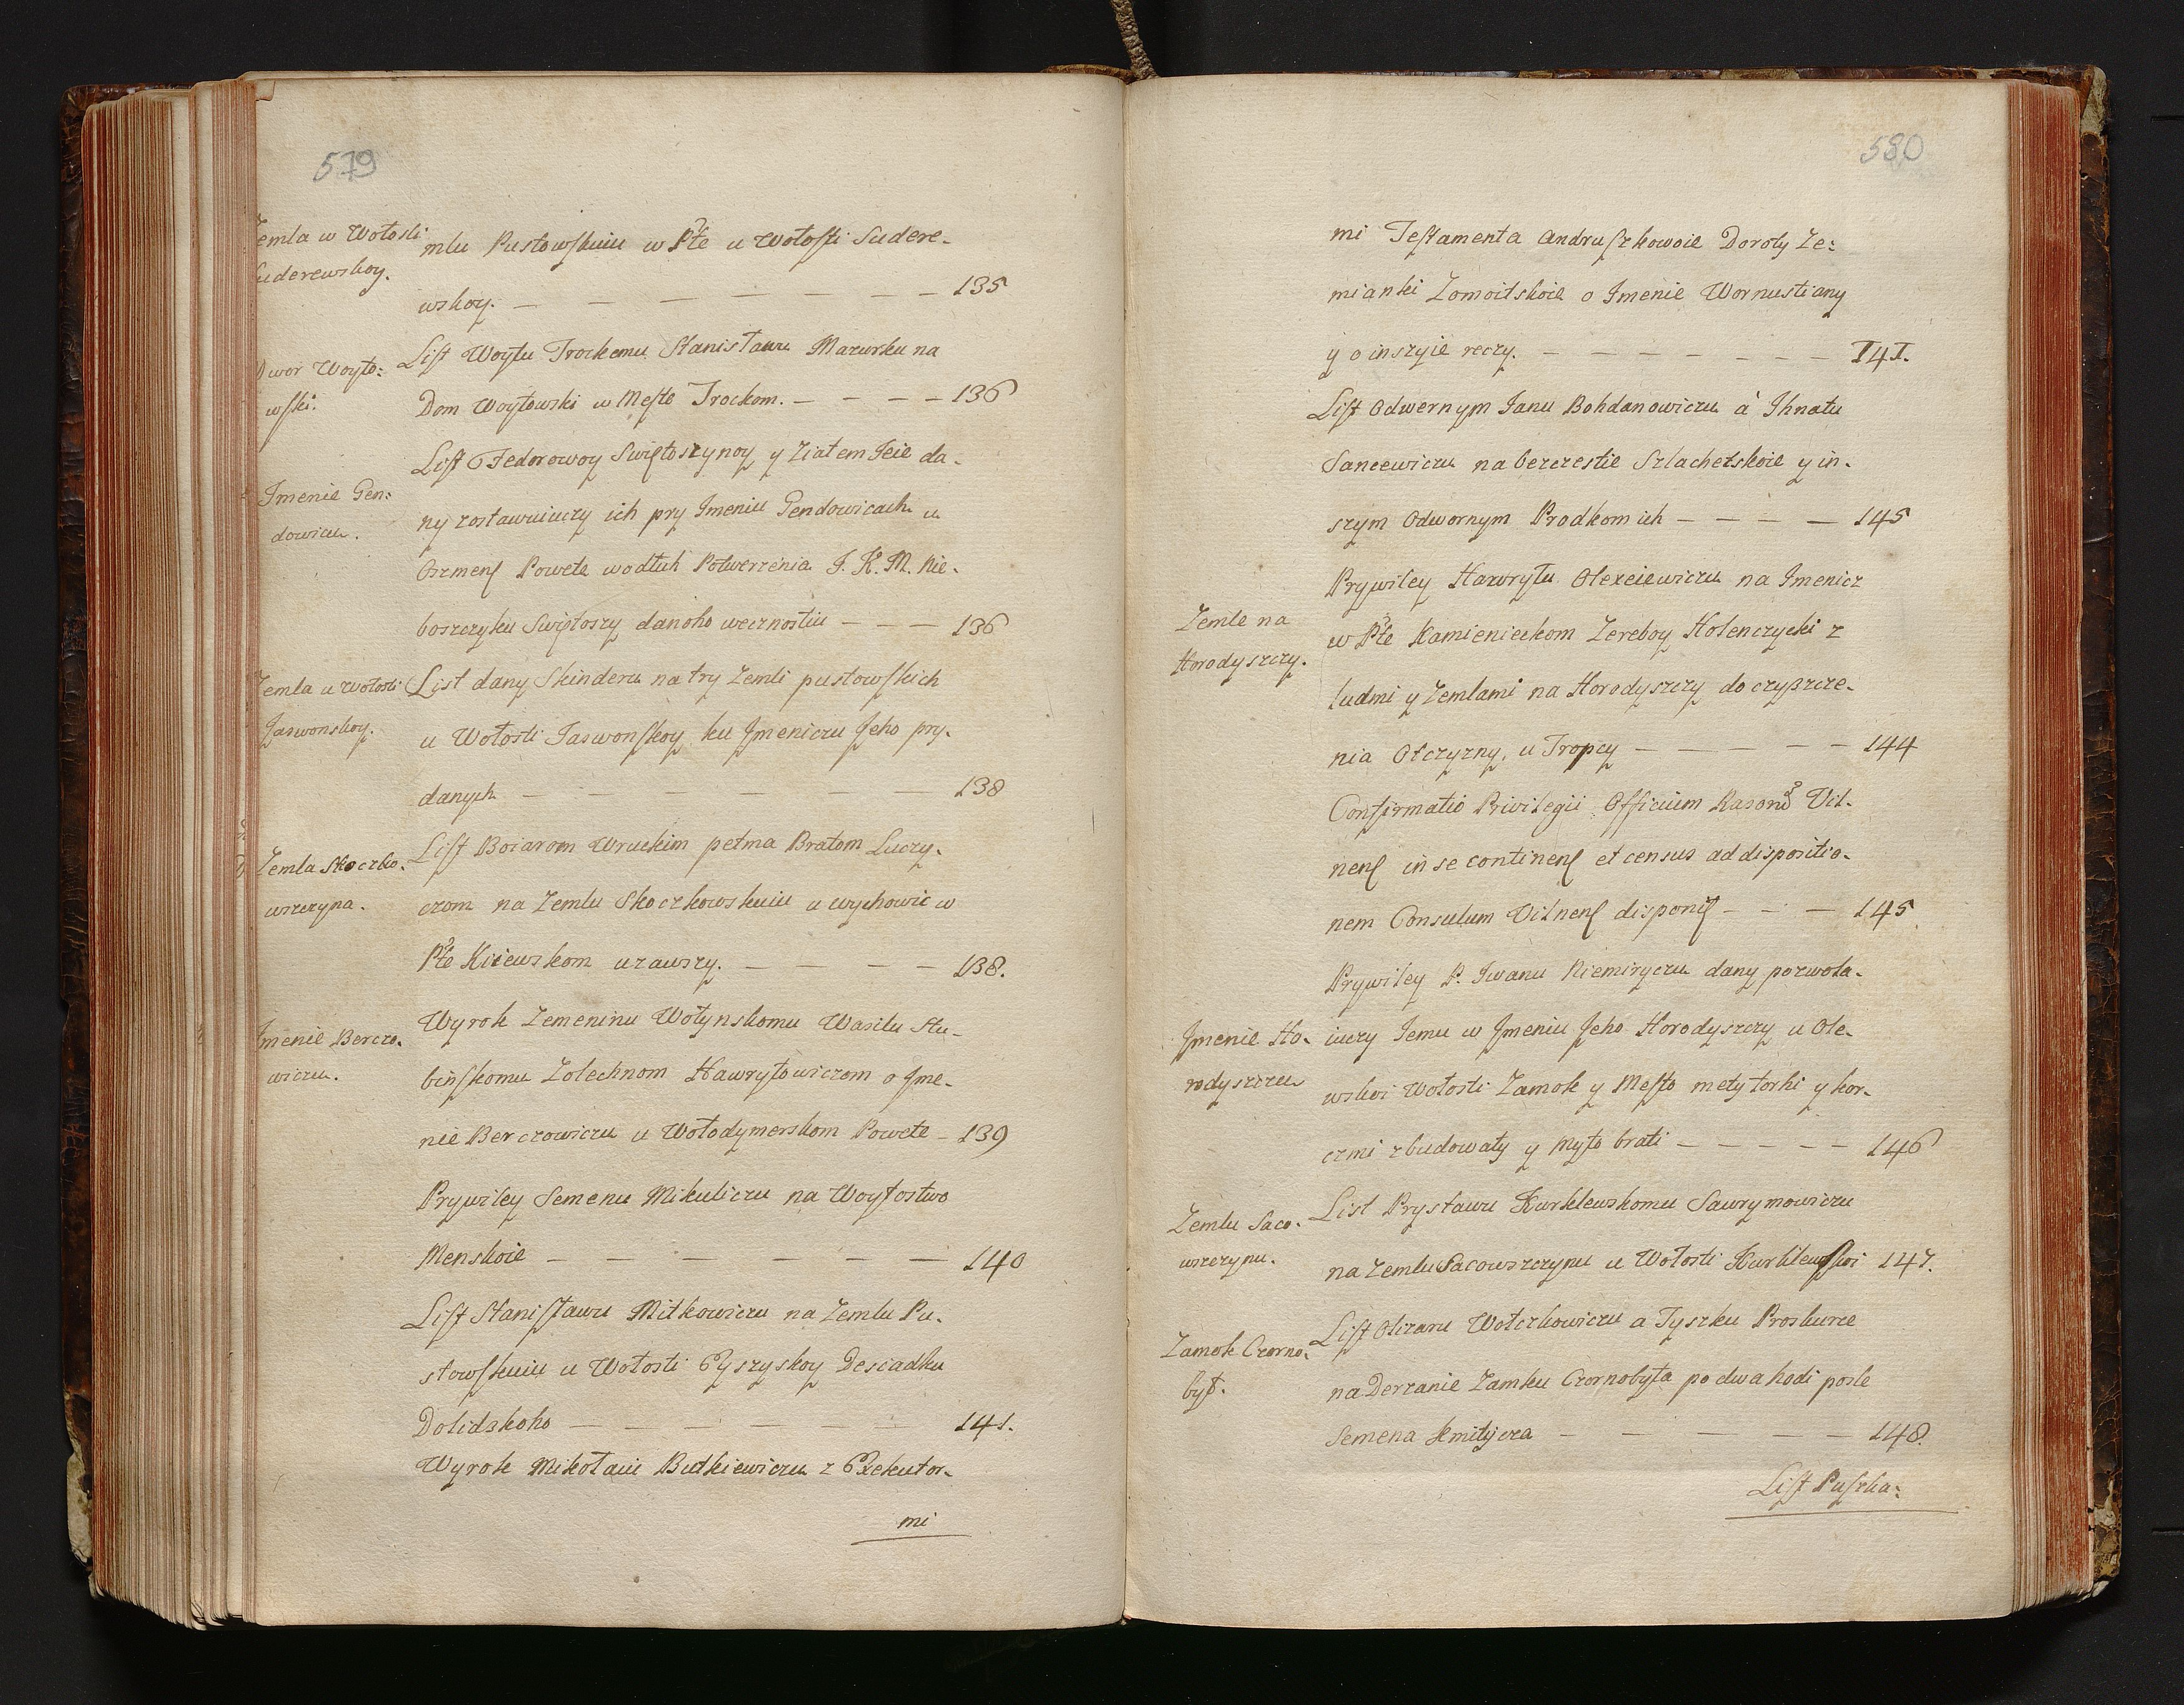 579
Zemla w Wołosti
Suderewskoy.
mlu Pustowskuiu w Pte u Wołosti Sudere-
wskoy. — — — — — — 135
Dwor Woyto:
wski.
List Woytu Trockomu Stanisławu Mazurku na
Dom Woytowski w Meste Trockom. — — — — 136
Imenie Gen:
dowicu.
List Fedorowoy Swiętoszynoy y Ziatem Jeie da-
ny zostawuiuczy ich pry Imeniu Gendowicach u
Oszmens Powete wodłuh Potwerzenia J. K. M. Nie-
boszczyku Swiętoszy danoho wecznostiu — — — 136
Zemla u Wołosti
Jaswonskoy.
List dany Skinderu na try Zemli pustowskich
u Wołosti Jaswonskoy ku Jmeniczu Jeho pry-
danych — — — — — — 138
Zemla Skoczko-
wszczyna.
List Boiarom Wruckim petma Bratom Luczy-
czom na Zemlu Skoczkowskuiu u wychowie w
Pte Kiiewskom uzawszy. — — — — 138.
Imenie Berczo-
wiczu.
Wyrok Zemeninu Wołynskomu Wasilu Hu-
binskomu Zolechnom Hawryłowiczom o Jme-
nie Berczowiczu u Wołodymerskom Powete — 139
Prywiley Semenu Mikuliczu na Woytostwo
Menskoie — — — — — — — 140
List Stanisławu Mitkowiczu na Zemlu Pu-
stowskuiu u Wołosti Eyszyskoy Desiadku
Dolidskoho — — — — — — 141.
Wyrok Mikołaiu Butkiewiczu z Exekutor-
mi
580
mi Testamenta Andruszkowoie Doroty Ze:
mianki Zomoitskoie o Imenie Wornustiany
y o inszyie reczy. — — — — — — — 141.
List Odwernym Janu Bohdanowiczu à Ihnatu
Sancewiczu na bezczestie Szlachetskoie y in-
szym Odwornym Prodkom ich — — — — 145
Zemle na
Horodyszczy.
Prywiley Hawryłu Olexeiewiczu na Imenicz
w Pte Kamienieckom Zereboy Holenczycki z
ludmi y Zemlami na Horodyszczy do czyszcze-
nia Otczyzny, u Tropcy — — — — — 144
Confirmatio Privilegii Officium Rasons Vil-
nens in se continens et census ad dispositio-
nem Consulum Vilnens dispons — — — 145
Imenie Ho-
rodyszczu
Prywiley P. Iwanu Niemiryczu dany pozwola-
iuczy Jemu w Jmeniu Jeho Horodyszczy u Ole-
wskoi Wołosti Zamok y Mesto mety torhi y kor-
czmi zbudowaty y Myto brati — — — — — 146
Zemlu Saco-
wszczynu.
List Prystawu Kurklewskomu Sawrymowiczu
na Zemlu Sacowszczynu u Wołosti Kurklewskoi 147.
Zamok Czorno-
był.
List Olizaru Wołczkowiczu a Tyszku Proskurce
na Derzanie Zamku Czornobyla po dwa hodi posle
Semena Kmitycza — — — — — 148.
List Puszka: